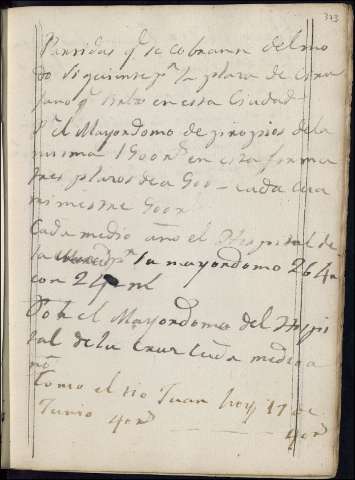 373
Partidas q.e se cobraran del mo
do siguiente p.r la plaza de Ciru
jano q.e hubo en esta Ciudad
P.r el Mayordomo de propios de la
misma 1900 r.s en esta forma
tres plazos de a 600 - cada cua
trimestre 600 r
Cada medio año el Hospital de
la p.r la mayordomo 264 r
con 24 ml
Por el Mayordomo del Hospi
tal de la Cruz cada medio a
ño
tomo el tio Juan hoy 17 de
Junio 40 r.s
40 r.s